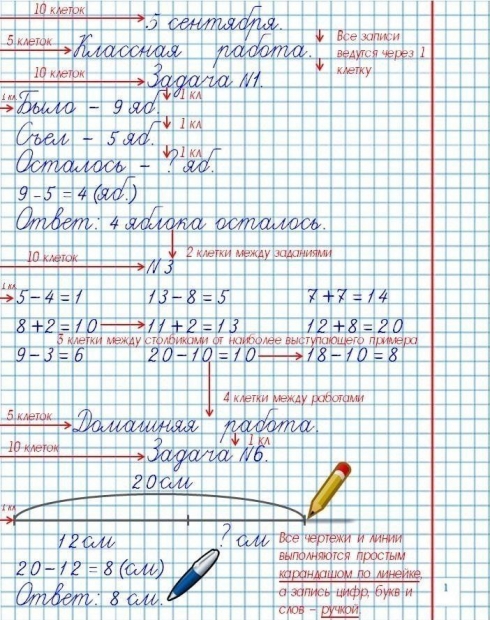 10 клеток 5 сентября.
5 клеток Классная работа. Все записи
ведутся через 1
клетку
10 клеток Задача №1.
1 кл Было – 9 яб. 1 кл
Съел – 5 яб. 1 кл
Осталось – ? яб. 1 кл
9 – 5 = 4 (яб.)
Ответ: 4 яблока осталось.
2 клетки между заданиями
10 клеток №3
1 кл 5 – 4 = 1 13 – 8 = 5 7 + 7 = 14
8 + 2 = 10 11 + 2 = 13 12 + 8 = 20
3 клетки между столбиками от наиболее выступающего примера
9 – 3 = 6 20 – 10 = 10 18 – 10 = 8
4 клетки между работами
5 клеток Домашняя работа.
1 кл
10 клеток Задача №6.
20 см
1 кл
12 см ? см
20 – 12 = 8 (см)
Ответ: 8 см.
Все чертежи и линии
выполняются простым
карандашом по линейке,
а запись цифр, букв и
слов – ручкой.
1